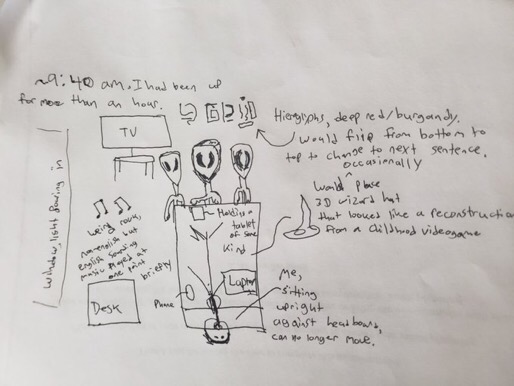 ~9:40 am. I had been up
for more than an hour.
Hieroglyphs, deep red/burgandy.
Would flip from bottom to
top to change to next sentence.
TV
occasionally
Would place
3D wizard hat
that looked like a reconstruction
from a childhood videogame
Window, light flowing in
Holding a
tablet
of some
kind
weird
non-english but
english sounding
music played at
one point
briefly
Desk
Phone
Laptop
Me,
sitting
upright
against headboard,
can no longer move.